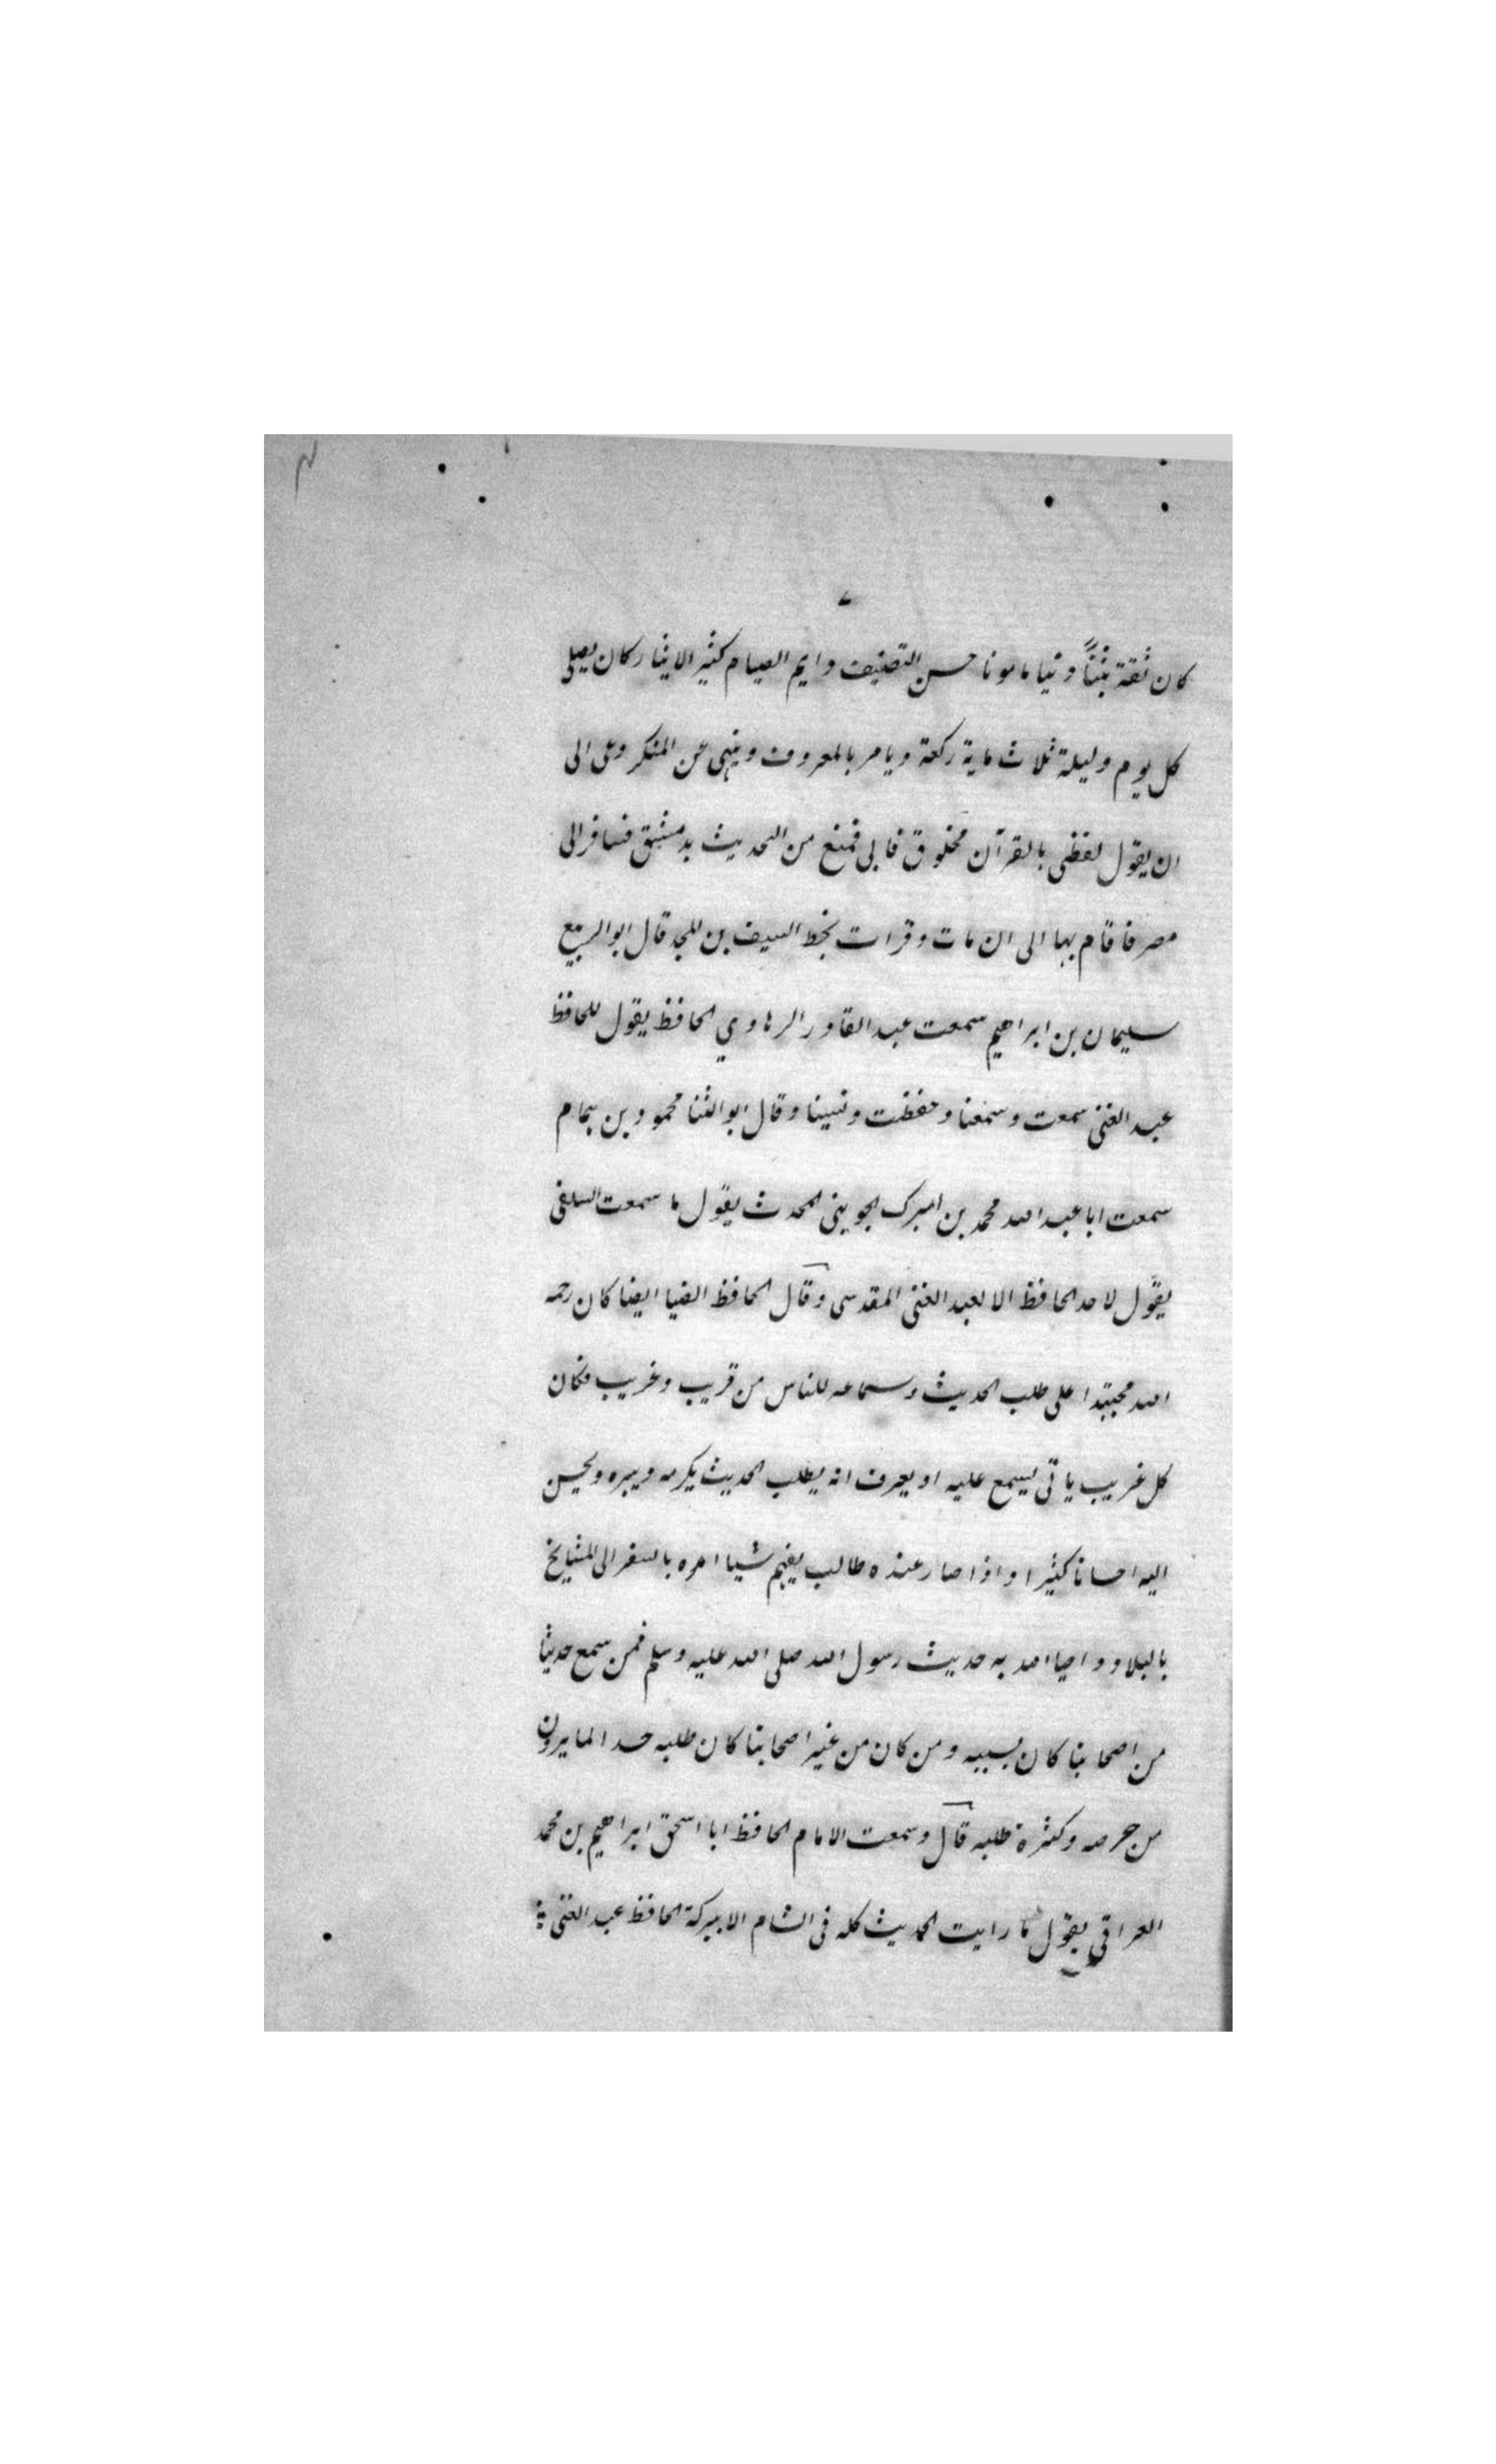 كان ثقة ثبتاً دينا مامونا حسن التصنيف دايم الصيام كثير الايثار كان يصلي
كل يوم وليلة ثلاث ماية ركعة ويامر بالمعروف وينهى عن المنكر دعى الى
ان يقول لفظى بالقرآن مخلوق فابى فمنع من التحديث بدمشق فسافر الى
مصر فاقام بها الى ان مات وقرات بخط السيف بن المجد قال ابو الربيع
سليمان بن ابراهيم سمعت عبد القادر الرهاوي الحافظ يقول للحافظ
عبد الغنى سمعت وسمعنا وحفظت ونسينا وقال ابو الثنا محمود بن همام
سمعت ابا عبد الله محمد بن امبرك الجوينى المحدث يقول ما سمعت السلفى
يقول لاحد الحافظ الا لعبد الغنى المقدسى وقال الحافظ الضيا ايضا كان رحمه
الله مجتهدا على طلب الحديث وسماعه للناس من قريب وغريب فكان
كل غريب ياتى ليسمع عليه او يعرف انه يطلب الحديث يكرمه ويبره ويحسن
اليه احسانا كثيرا واذا صار عنده طالب يفهم شيا امره بالسفر الى المشايخ
بالبلاد واحيا الله به حديث رسول الله صلى الله عليه وسلم فمن سمع حديثا
من اصحابنا كان بسببه ومن كان من غير اصحابنا كان طلبه حسدا لما يرون
من حرصه وكثرة طلبه قال وسمعت الامام الحافظ ابا اسحق ابراهيم بن محمد
العراقي يقول ما رايت الحديث كله فى الشام الا ببركة الحافظ عبد الغنى